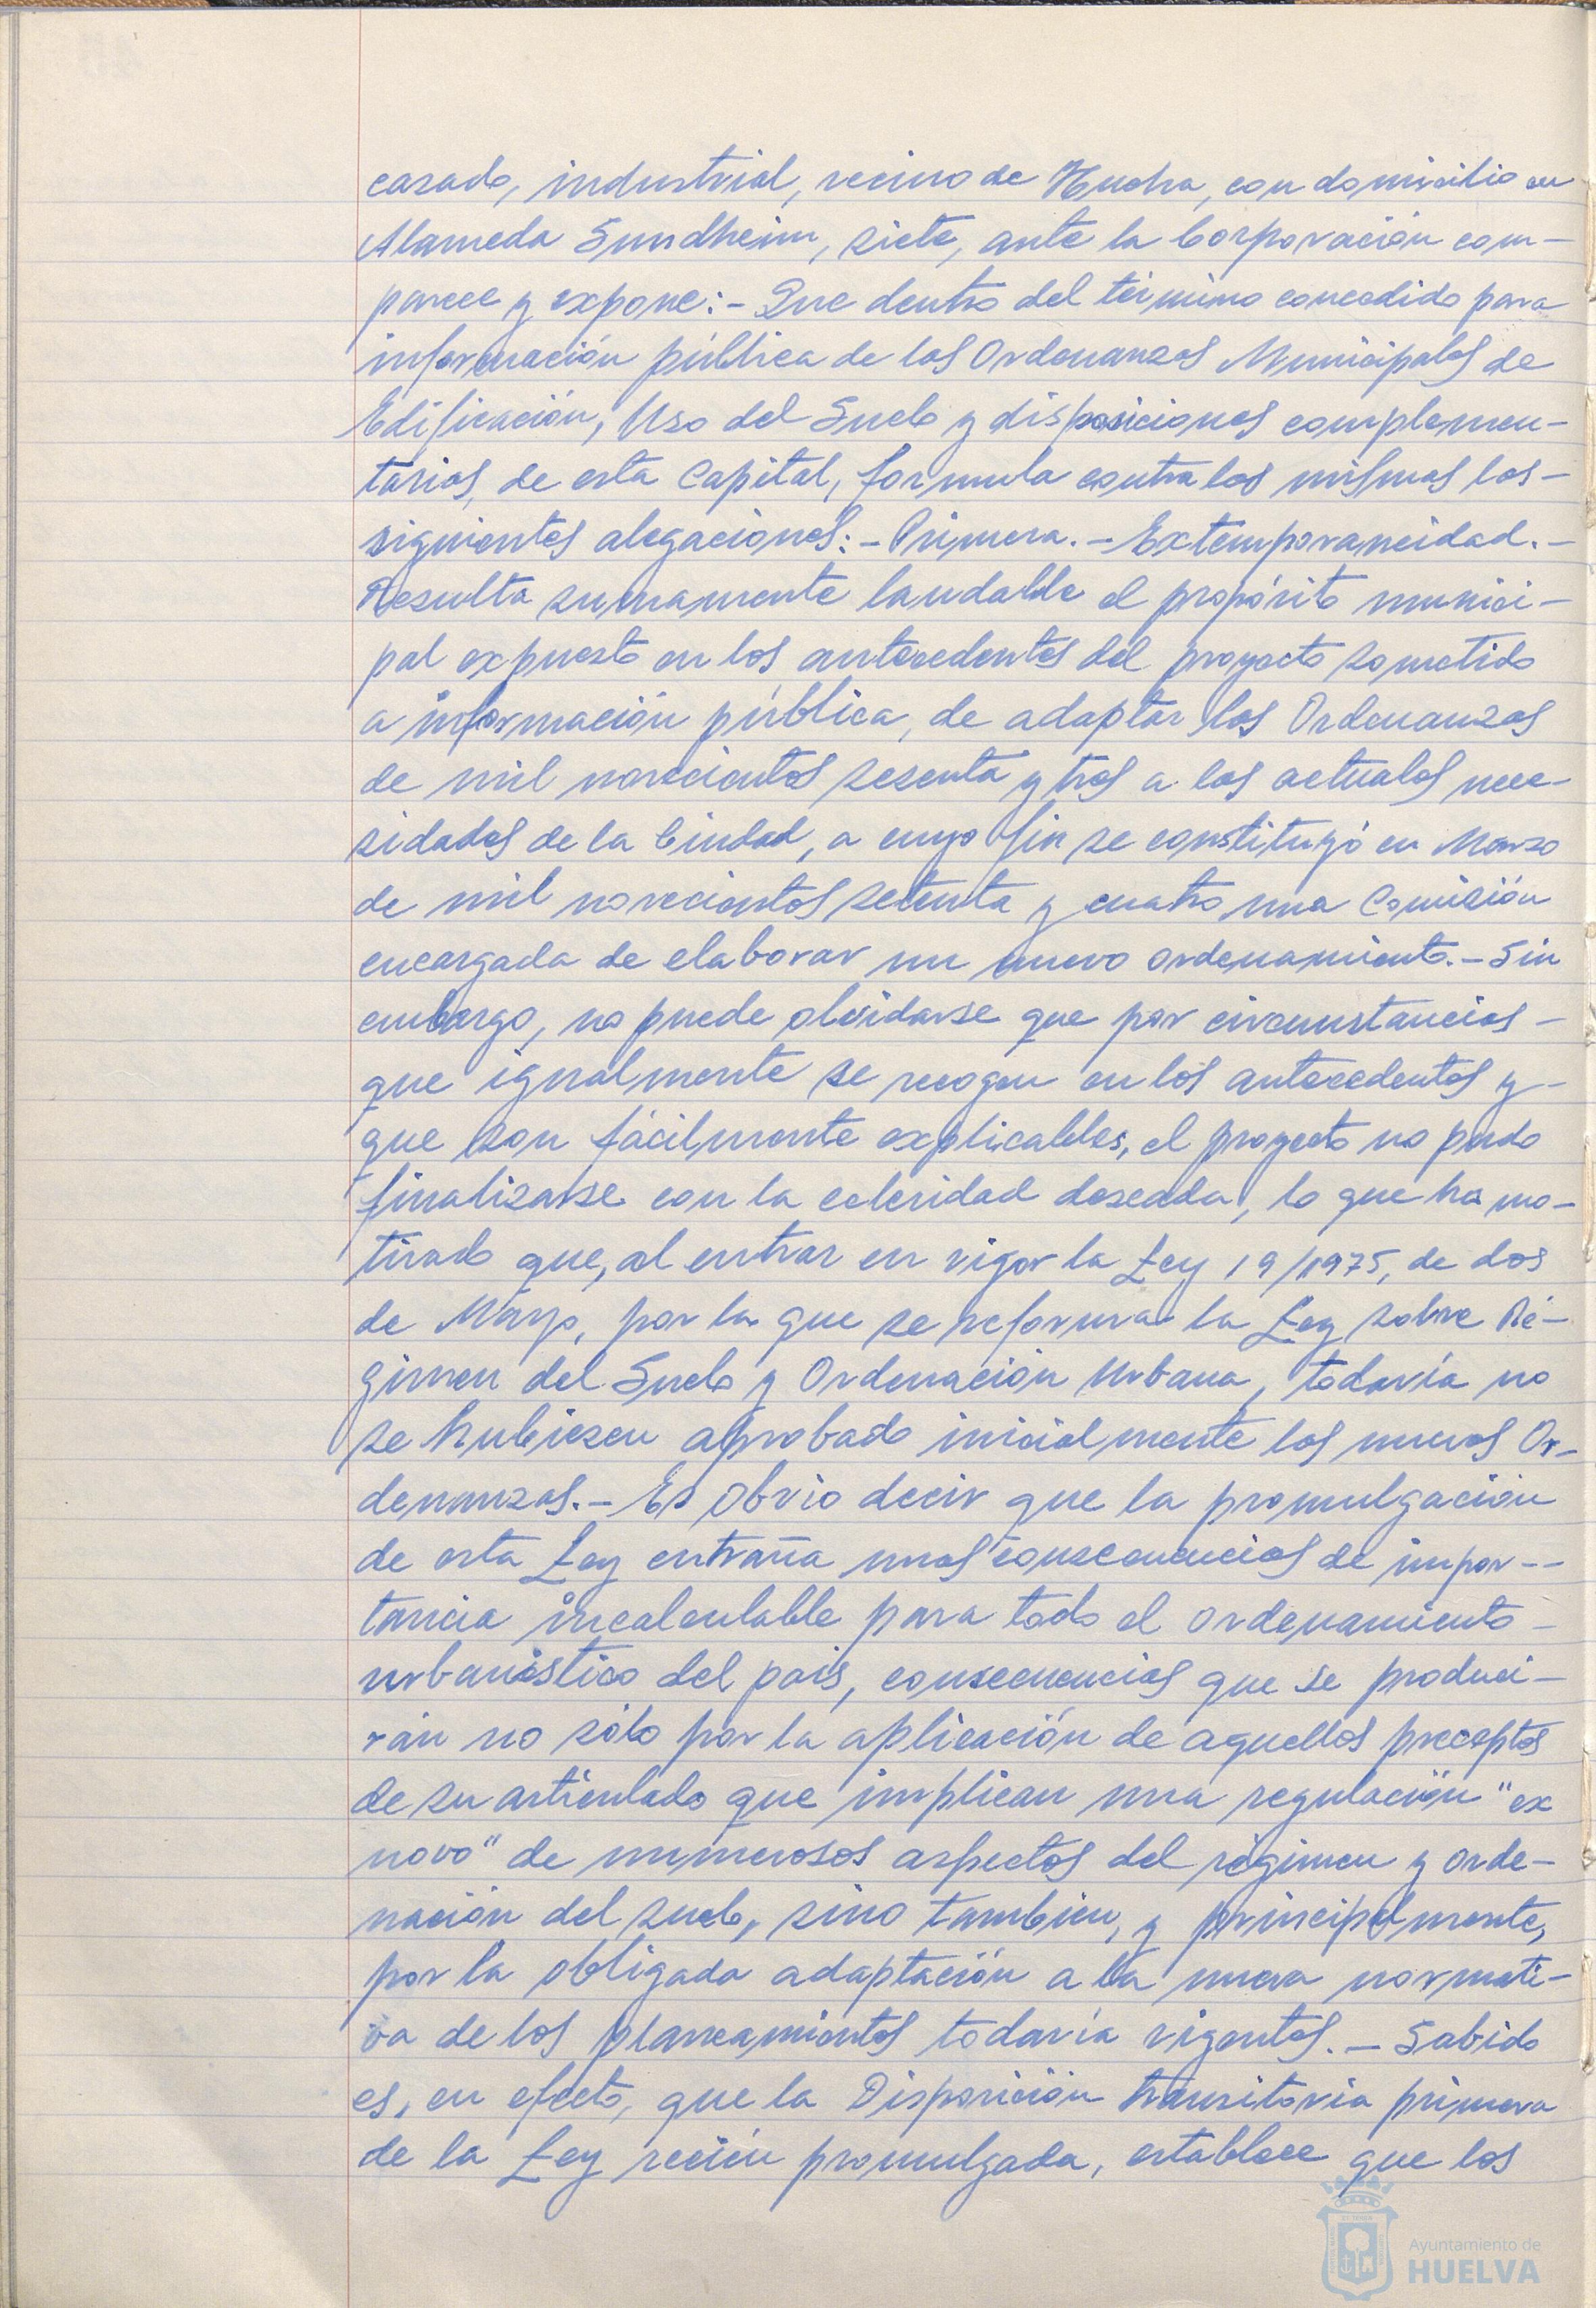 casado, industrial, vecino de Huelva, con domicilio en
Alameda Sundheim, siete, ante la Corporación com-
parece y expone:- Que dentro del término concedido para
información pública de las Ordenanzas Municipales de
Edificación, Uso del Suelo y disposiciones complemen-
tarias, de esta Capital, formula contra las mismas las-
siguientes alegaciones:- Primera.- Extemporaneidad.-
Resulta sumamente laudable el propósito munici-
pal expuesto en los antecedentes del proyecto sometido
a información pública, de adaptar las Ordenanzas
de mil novecientos sesenta y tres a las actuales nece-
sidades de la Ciudad, a cuyo fin se constituyó en Marzo
de mil novecientos setenta y cuatro una Comisión
encargada de elaborar un nuevo ordenamiento.- Sin
embargo, no puede olvidarse que por circunstancias-
que igualmente se recogen en los antecedentes y-
que son fácilmente explicables, el proyecto no pudo
finalizarse con la celeridad deseada, lo que ha mo-
tivado que, al entrar en vigor la Ley 19/1975, de dos
de Mayo, por la que se reforma la Ley sobre Ré-
gimen del Suelo y Ordenación Urbana, todavía no
se hubiesen aprobado inicialmente las nuevas Or-
denanzas.- Es obvio decir que la promulgación
de esta Ley entraña unas consecuencias de impor--
tancia incalculable para todo el ordenamiento-
urbanístico del pais, consecuencias que se produci-
rán no sólo por la aplicación de aquellos preceptos
de su articulado que implican una regulación "ex
novo" de numerosos aspectos del régimen y orde-
nación del suelo, sino tambien, y principalmente,
por la obligada adaptación a la nueva normati-
va de los planeamientos todavía vigentes.- Sabido
es, en efecto, que la Disposición transitoria primera
de la Ley recién promulgada, establece que los
Ayuntamiento de
HUELVA